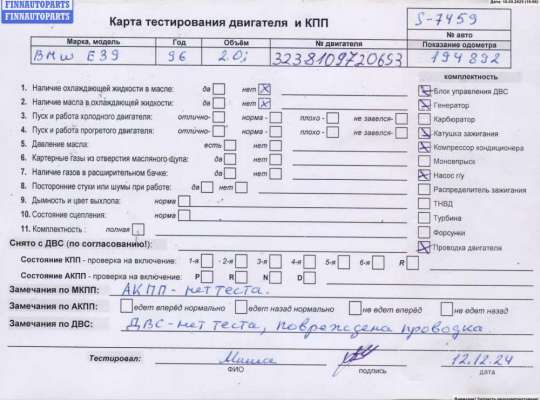 FINNAUTOPARTS
FINNAUTOPARTS
Карта тестирования двигателя и КПП
S-7459
№ авто
Марка, модель Год Объём № двигателя Показание одометра
BMW E39 96 2.0i 3238109720653 194892
комплектность
1. Наличие охлаждающей жидкости в масле: да нет x
2. Наличие масла в охлаждающей жидкости: да нет x
3. Пуск и работа холодного двигателя: отлично- норма - плохо - не завелся-
4. Пуск и работа прогретого двигателя: отлично- норма - плохо - не завелся-
5. Давление масла: есть нет
6. Картерные газы из отверстия масляного щупа: да нет
7. Наличие газов в расширительном бачке: да нет
8. Посторонние стуки или шумы при работе: да нет
9. Дымность и цвет выхлопа: норма
10. Состояние сцепления: норма
11. Комплектность : полная
x Блок управления ДВС
x Генератор
Карбюратор
x Катушка зажигания
x Компрессор кондиционера
Моновпрыск
x Насос г/у
Распределитель зажигания
ТНВД
Турбина
Форсунки
x Проводка двигателя
Снято с ДВС (по согласованию!):
Состояние КПП - проверка на включение: 1-я - 2-я 3-я 4-я 5-я 6-я R
Состояние АКПП - проверка на включение: P R N D
Замечания по МКПП: АКПП - нет теста.
Замечания по АКПП: едет вперёд нормально едет назад нормально не едет вперёд не едет назад
Замечания по ДВС: ДВС-нет теста, повреждена проводка.
Тестировал: Миша 12.12.24
ФИО подпись дата